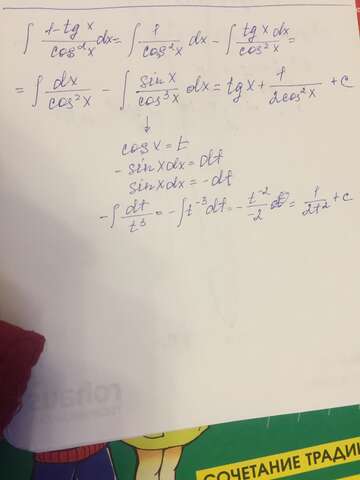 ∫ (1-tg x)/(cos²x) dx = ∫ 1/(cos²x) dx - ∫ (tg x dx)/(cos²x) =
= ∫ dx/(cos²x) - ∫ (sin x)/(cos³x) dx = tg x + 1/(2cos²x) + c
↓
cos x = t
- sin x dx = dt
sin x dx = - dt
- ∫ dt/t³ = - ∫ t⁻³ dt = - t⁻²/-2 = 1/(2t²) + c
rohaus
СОЧЕТАНИЕ ТРАДИ